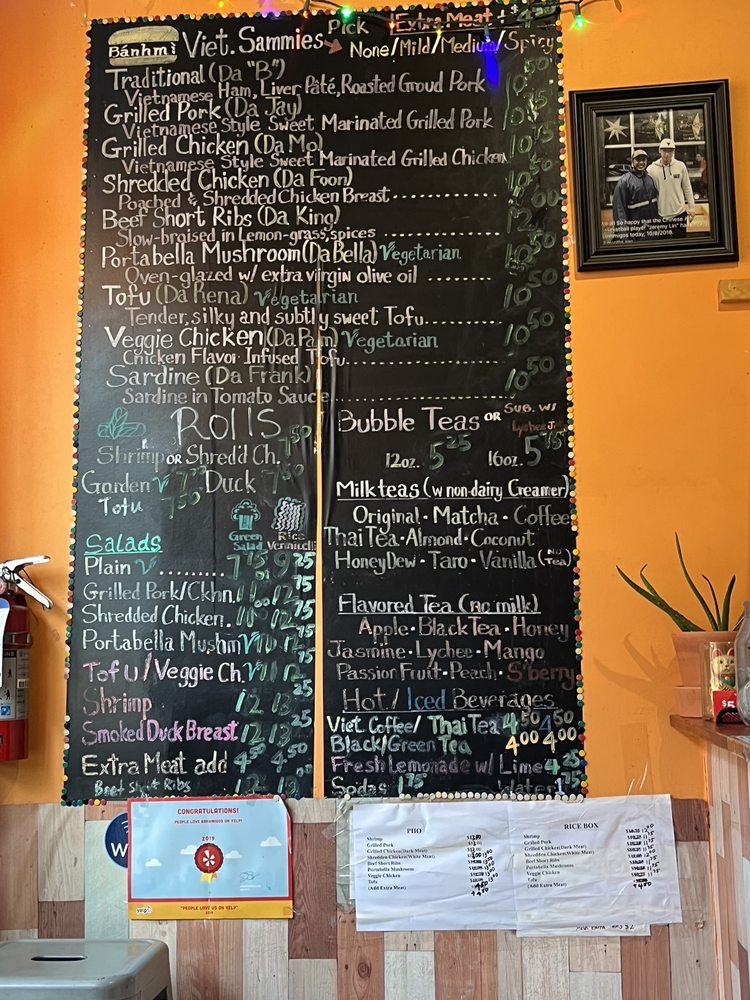 Bánhmì Viet. Sammies Pick Extra Meat +
None/Mild/Medium/Spicy
Traditional (Da "B") 10.50
Vietnamese Ham, Liver Pâté, Roasted Groud Pork
Grilled Pork (Da Jay) 10.75
Vietnamese Style Sweet Marinated Grilled Pork
Grilled Chicken (Da Mo) 10.75
Vietnamese Style Sweet Marinated Grilled Chicken
Shredded Chicken (Da Foon) 10.50
Poached & Shredded Chicken Breast
Beef Short Ribs (Da King) 12.00
Slow-braised in Lemon-grass, spices
Portabella Mushroom (Da Bella) Vegetarian 10.50
Oven-glazed w/ extra virgin olive oil
Tofu (Da Rena) Vegetarian 10.50
Tender, silky and subtly sweet Tofu
Veggie Chicken (Da Pam) Vegetarian 10.50
Chicken Flavor Infused Tofu
Sardine (Da Frank) 10.50
Sardine in Tomato Sauce
Rolls
Shrimp or Shred'd Ch. 7.50
Garden V Duck 7.50
Tofu 7.50
Green Salad
Rice Vermicelli
Salads
Plain V 9.25
Grilled Pork/Ckhn. 12.75
Shredded Chicken. 12.75
Portabella Mushm V
Tofu/Veggie Ch. V
Shrimp 12 13.25
Smoked Duck Breast 12 13.25
Extra Meat add 4.50 4.50
Beef Short Ribs
Bubble Teas or Sub. w/ Lychee
12oz. 5.25 16oz. 5.75
Milkteas (w non-dairy Creamer)
Original • Matcha • Coffee
Thai Tea • Almond • Coconut
HoneyDew • Taro • Vanilla (No Tea)
Flavored Tea (no milk)
Apple • Black Tea • Honey
Jasmine • Lychee • Mango
Passion Fruit • Peach • S'berry
Hot/Iced Beverages
Viet Coffee/Thai Tea 4.50 4.50
Black/Green Tea 4.00 4.00
Fresh Lemonade w/ Lime 4.25
Sodas 1.75 Water
so happy that the Chinese
Basketball player "Jeremy Lin"
today, 10/8/2018.
CONGRATULATIONS!
PEOPLE LOVE BANHMIGOS ON YELP!
2019
yelp
"PEOPLE LOVE US ON YELP"
2019
W
PHO
Shrimp
Grilled Pork
Grilled Chicken(Dark Meat)
Shredden Chicken(White Meat)
Beef Short Ribs
Portabella Mushroom
Veggie Chicken
Tofu
(Add Extra Meat) 4.50
RICE BOX
Shrimp
Grilled Pork
Grilled Chicken(Dark Meat)
Shredden Chicken(White Meat)
Beef Short Ribs
Portabella Mushroom
Veggie Chicken
Tofu
(Add Extra Meat) 4.50